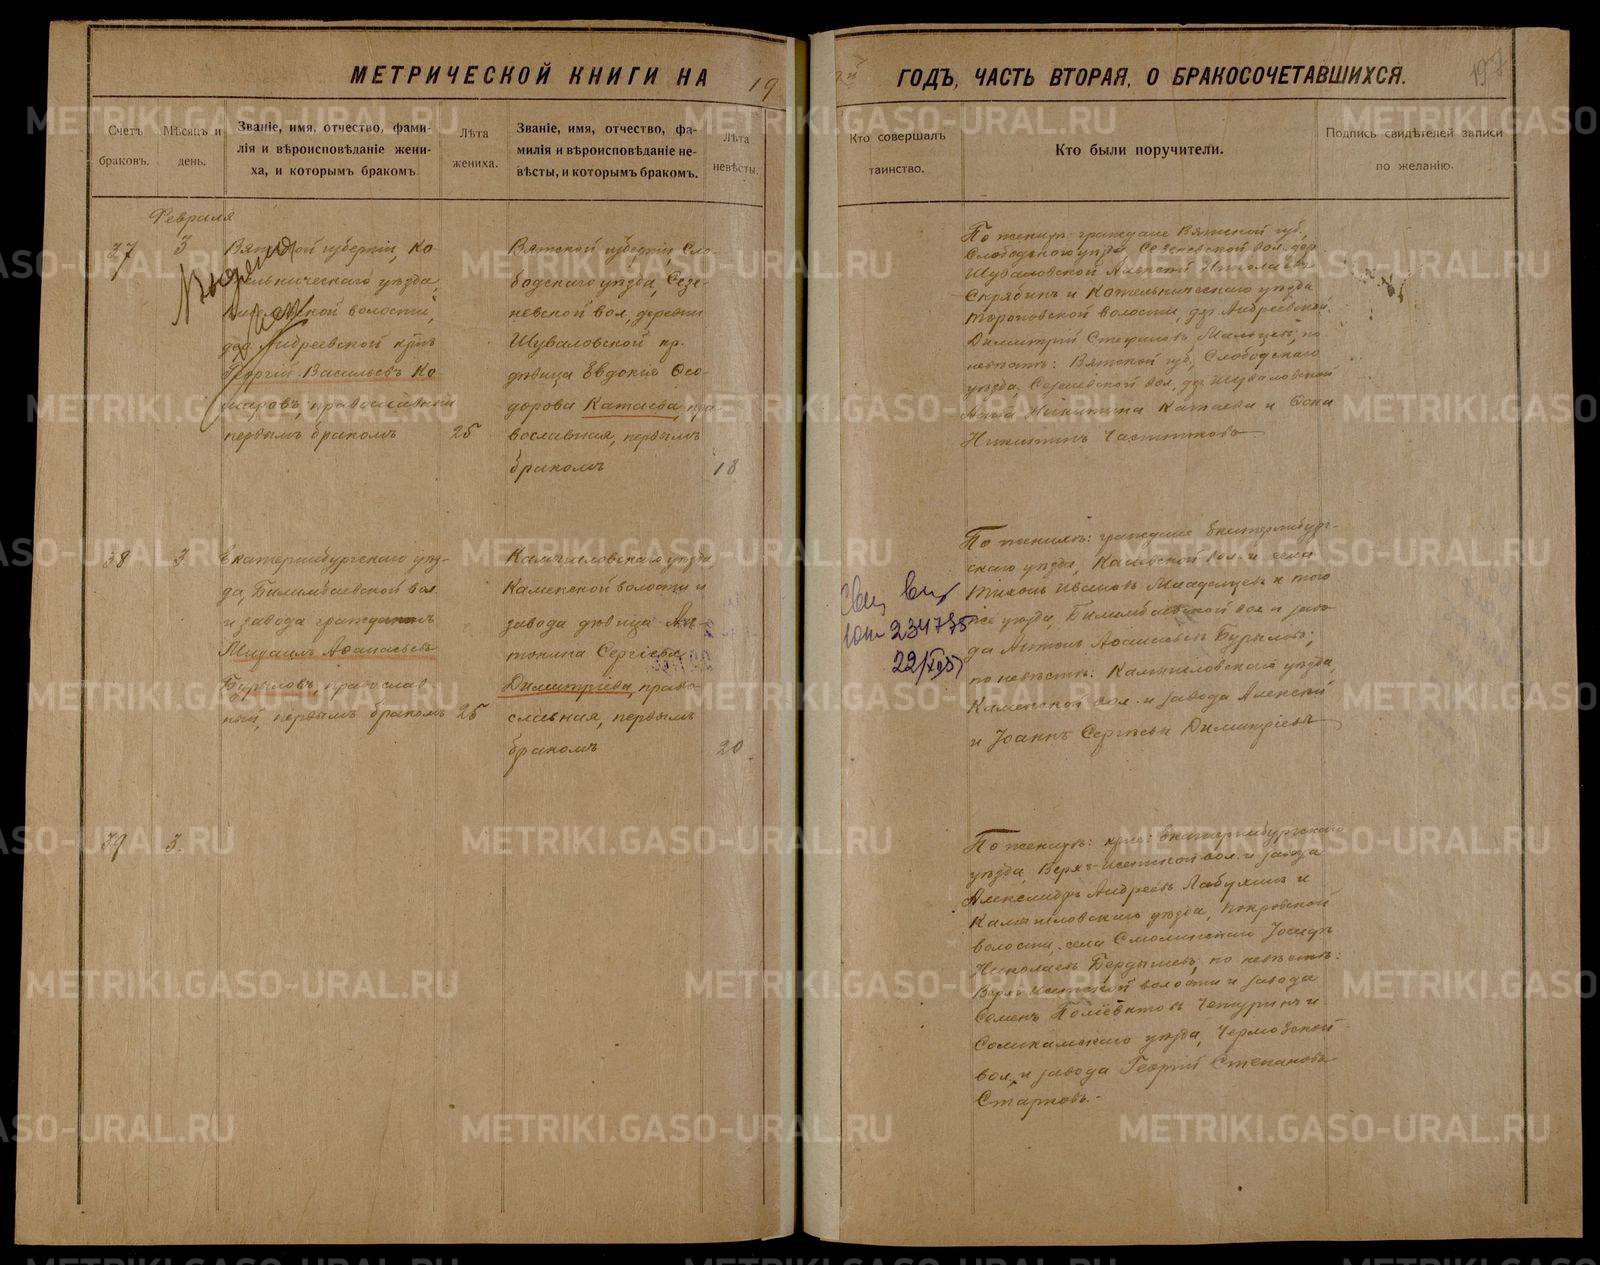 МЕТРИЧЕСКОЙ КНИГИ НА 19
ГОДЪ, ЧАСТЬ ВТОРАЯ, О БРАКОСОЧЕТАВШИХСЯ.
Счетъ браковъ.
Мѣсяцъ и день.
Званіе, имя, отчество, фами-
лія и вѣроисповѣданіе жени-
ха, и которымъ бракомъ
Лѣта жениха.
Званіе, имя, отчество, фа-
милія и вѣроисповѣданіе не-
вѣсты, и которымъ бракомъ.
Лѣта невѣсты.
Кто совершалъ таинство.
Кто были поручители.
Подпись свидѣтелей записи по желанію.
Февраля
37
3
Вятской губерніи, Ко-
тельническаго уѣзда,
волости,
дер. Андреевской
Георгій Васильевъ Ко
маровъ, православный
первымъ бракомъ
25
Вятской губерніи, Сло-
бодскаго уѣзда, Сезе-
невской вол., деревни
Шуваловской кр.
дѣвица Евдокія Ѳео-
дорова Катаева, пра-
вославная, первымъ
бракомъ
18
По женихѣ: граждане Вятской губ.,
Слободскаго уѣзда Сезеневской вол. дер.
Шуваловской Алексѣй Николаевъ
Скрябинъ и Котельническаго уѣзда
волости, др. Андреевской
Димитрій Стефановъ по
невѣстѣ: Вятской губ., Слободскаго
уѣзда, Сезеневской вол., др. Шуваловской
Никитина Катаева и
Никитинъ
38
3
Екатеринбургскаго уѣз-
да, Билимбаевской вол.
и завода гражданинъ
Михаилъ Аѳанасьевъ
Бурыловъ, православ
ный, первымъ бракомъ
25
Камышловскаго уѣзда,
Каменской волости и
завода дѣвица Ан-
тонина Сергіева
Димитріева, право-
славная, первымъ
бракомъ
20
234735
По женихѣ: граждане Екатеринбург-
скаго уѣзда, вол. и села
Тихонъ Ивановъ и того
же уѣзда, Билимбаевской вол. и заво-
да Антонъ Аѳанасьевъ Бурыловъ;
по невѣстѣ: Камышловскаго уѣзда,
Каменской вол. и завода Алексѣй
и Іоаннъ Сергіевы Димитріевы
39
3.
По женихѣ: Екатеринбургскаго
уѣзда, Верхъ-Исетской вол. и завода
Александръ Андреевъ Лабухинъ и
Камышловскаго уѣзда, Покровской
волости, села Смолинскаго Іосифъ
Николаевъ Бердышевъ, по невѣстѣ:
Верхъ-Исетской волости и завода
Семенъ Чепуринъ и
Соликамскаго уѣзда, Чермозской
вол. и завода Георгій Степановъ
Старковъ.-
METRIKI.GASO-URAL.RU